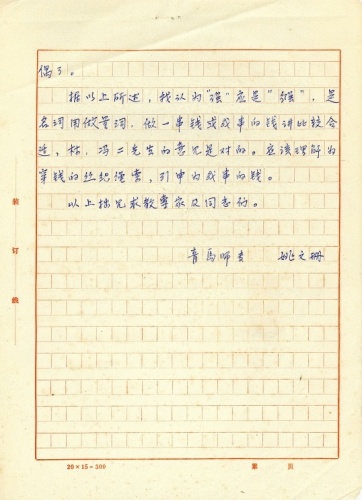 偶了。
据以上所述，我认为“强”应是“繦”，是
名词用做量词，做一串钱或成串的钱讲比较合
适，林、冯二先生的意见是对的。应该理解为
穿钱的丝织绳索，引申为成串的钱。
以上拙见求教专家及同志们。
青岛师专 姚文册
装
订
线
20×15=300
第 页